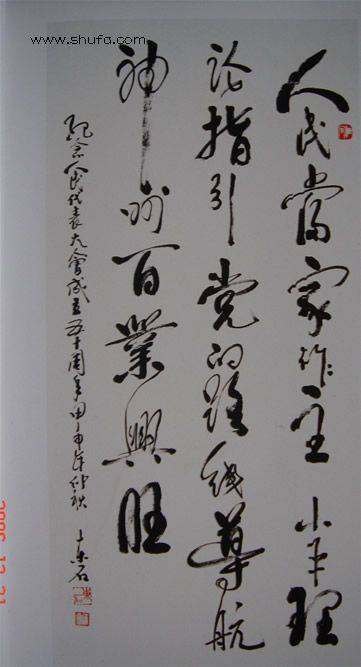 www.shufa.com
人民當家作主 小平理
论指引 党的路线導航
神州百業興旺
纪念人民代表大會成立五十周年 甲申年仲秋